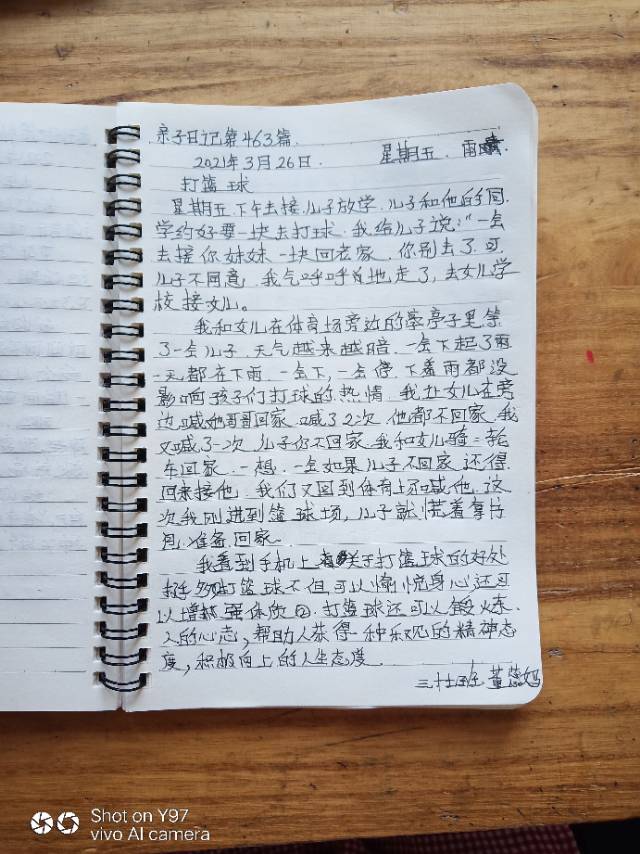 亲子日记第463篇.
2021年3月26日. 星期五. 雨
打篮球
星期五下午去接儿子放学.儿子和他的同
学约好要一块去打球.我给儿子说:"一会
去接你妹妹一块回老家.你别去了.可
儿子不同意.我气呼呼的地走了,去女儿学
校接女儿。
我和女儿在体育场旁边的亭子里等
了一会儿子.天气越来越暗.一会下起了雨
一天都在下雨.一会下,一会停.下着雨都没
影响孩子们打球的热情.我让女儿在旁
边喊她哥哥回家.喊了2次.他都不回家.我
又喊了一次.儿子仍不回家.我和女儿骑二轮
车回家.一想.一会如果儿子不回家.还得
回来接他.我们又回到体育场喊他.这
次我刚进到篮球场,儿子就慌着拿书
包.准备回家.
我看到手机上关于打篮球的好处
挺多的打篮球不但可以愉悦身心还可
以增强体质.打篮球还可以锻炼
人的心态,帮助人获得一种乐观的精神态
度,积极向上的人生态度.
三社班董慧妈
Shot on Y97
vivo AI camera